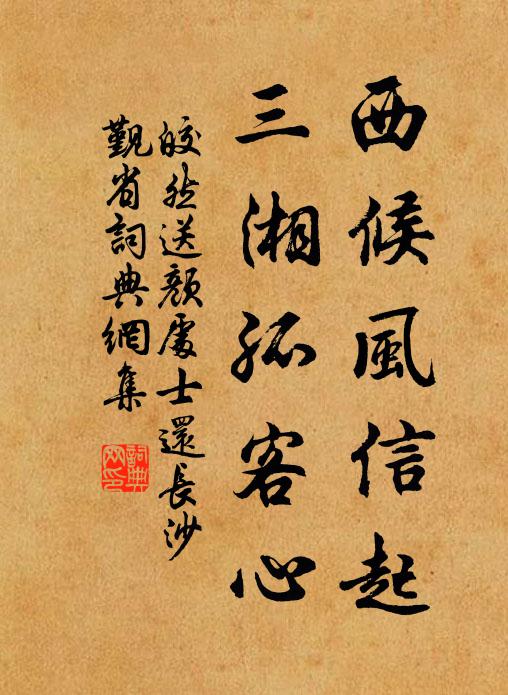 西候風信起
三湘孤客心
皎然送顏處士還長沙
觐省詞典網集
詞典網印